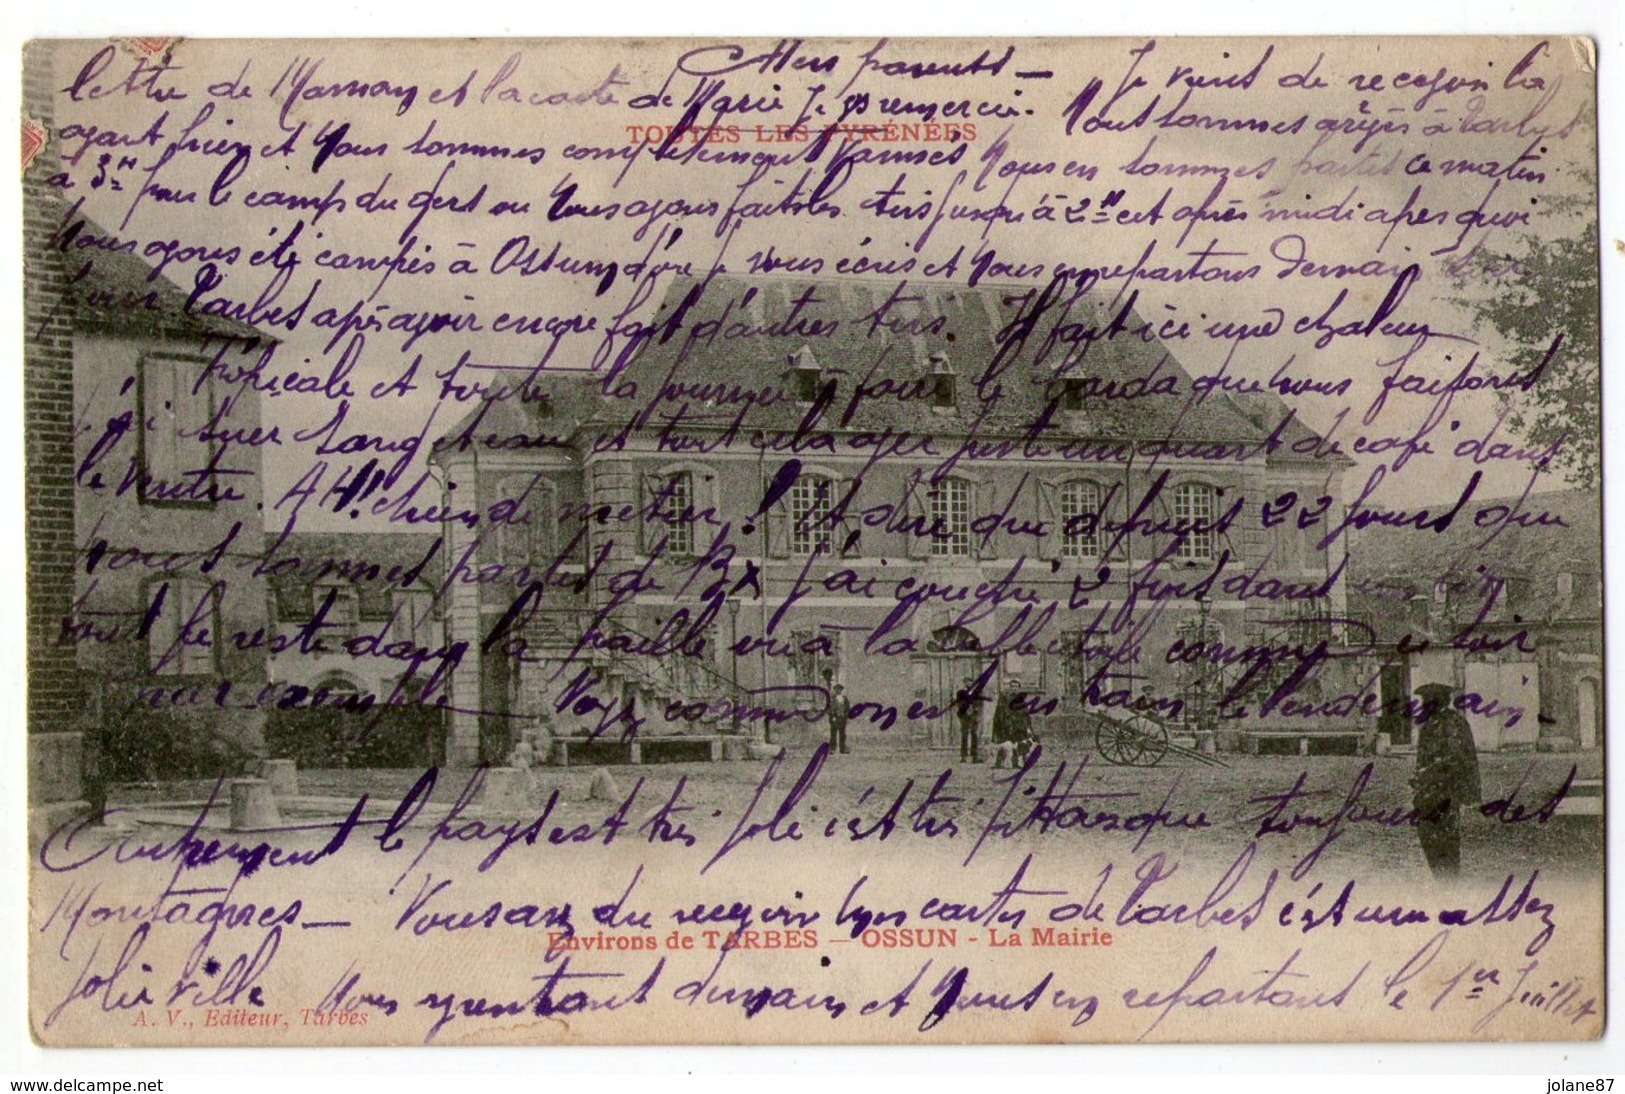 Chers parents – Je viens de recevoir la
lettre de Maman et la carte de Marie Je vs remercie. Nous sommes arrivés à Tarbes
TOUTES LES PYRÉNÉES
avant hier et Nous sommes complètement vannés Nous en sommes partis ce matin
à 3H pour le camp du gers ou Nous avons fait des tirs jusqu'à 2H cet après midi apès quoi
Nous avons été campés à Ossun d'ore je vous écris et Nous en repartons demain soir
pour Tarbes apès avoir encore fait d'autres tirs. Il fait ici une chaleur
Tropicale et toute la journée à faire le barda que nous faisons
ici suer sang et eau et tout cela avec juste un quart de café dans
le ventre. AH! chien de métier! Et dire que depuis 22 jours que
nous sommes partis de Bx j'ai couché 2 fois dans un lit
tout le reste dans la paille ou à la belle étoile comme ce soir
par exemple – Voyez comme on est en train le lendemain –
Autrement le pays est très joli c'est très pittoresque toujours des
Montagnes – Vous avez du recevoir les cartes de Tarbes c'est une assez
Environs de TARBES — OSSUN - La Mairie
jolie ville Nous y rentrons demain et Nous en repartons le 1er Juillet
A. V., Editeur, Tarbes
www.delcampe.net
jolane87